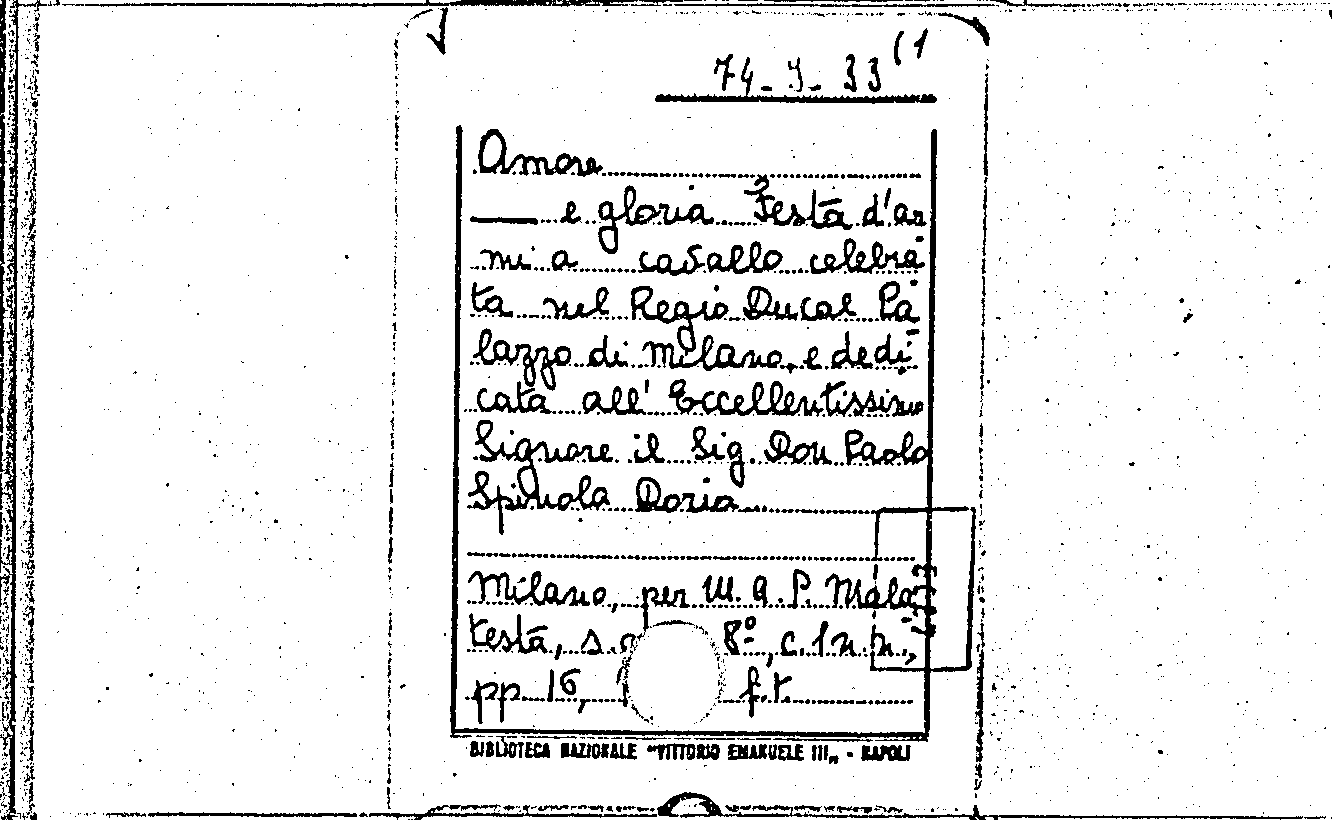 74-J-33 (1
Amore
—— e gloria Festa d'ar
mi a cavallo celebra
ta nel Regio Ducal Pa
lazzo di Milano, e dedi
cata all' Eccellentissimo
Signore il Sig. Don Paolo
Spinola Doria...
Milano, per M. A. P. Mala
testa, s.a. 8º, c. 1 n.n.,
pp 16, f.t.
BIBLIOTECA NAZIONALE "VITTORIO EMANUELE III„ - NAPOLI